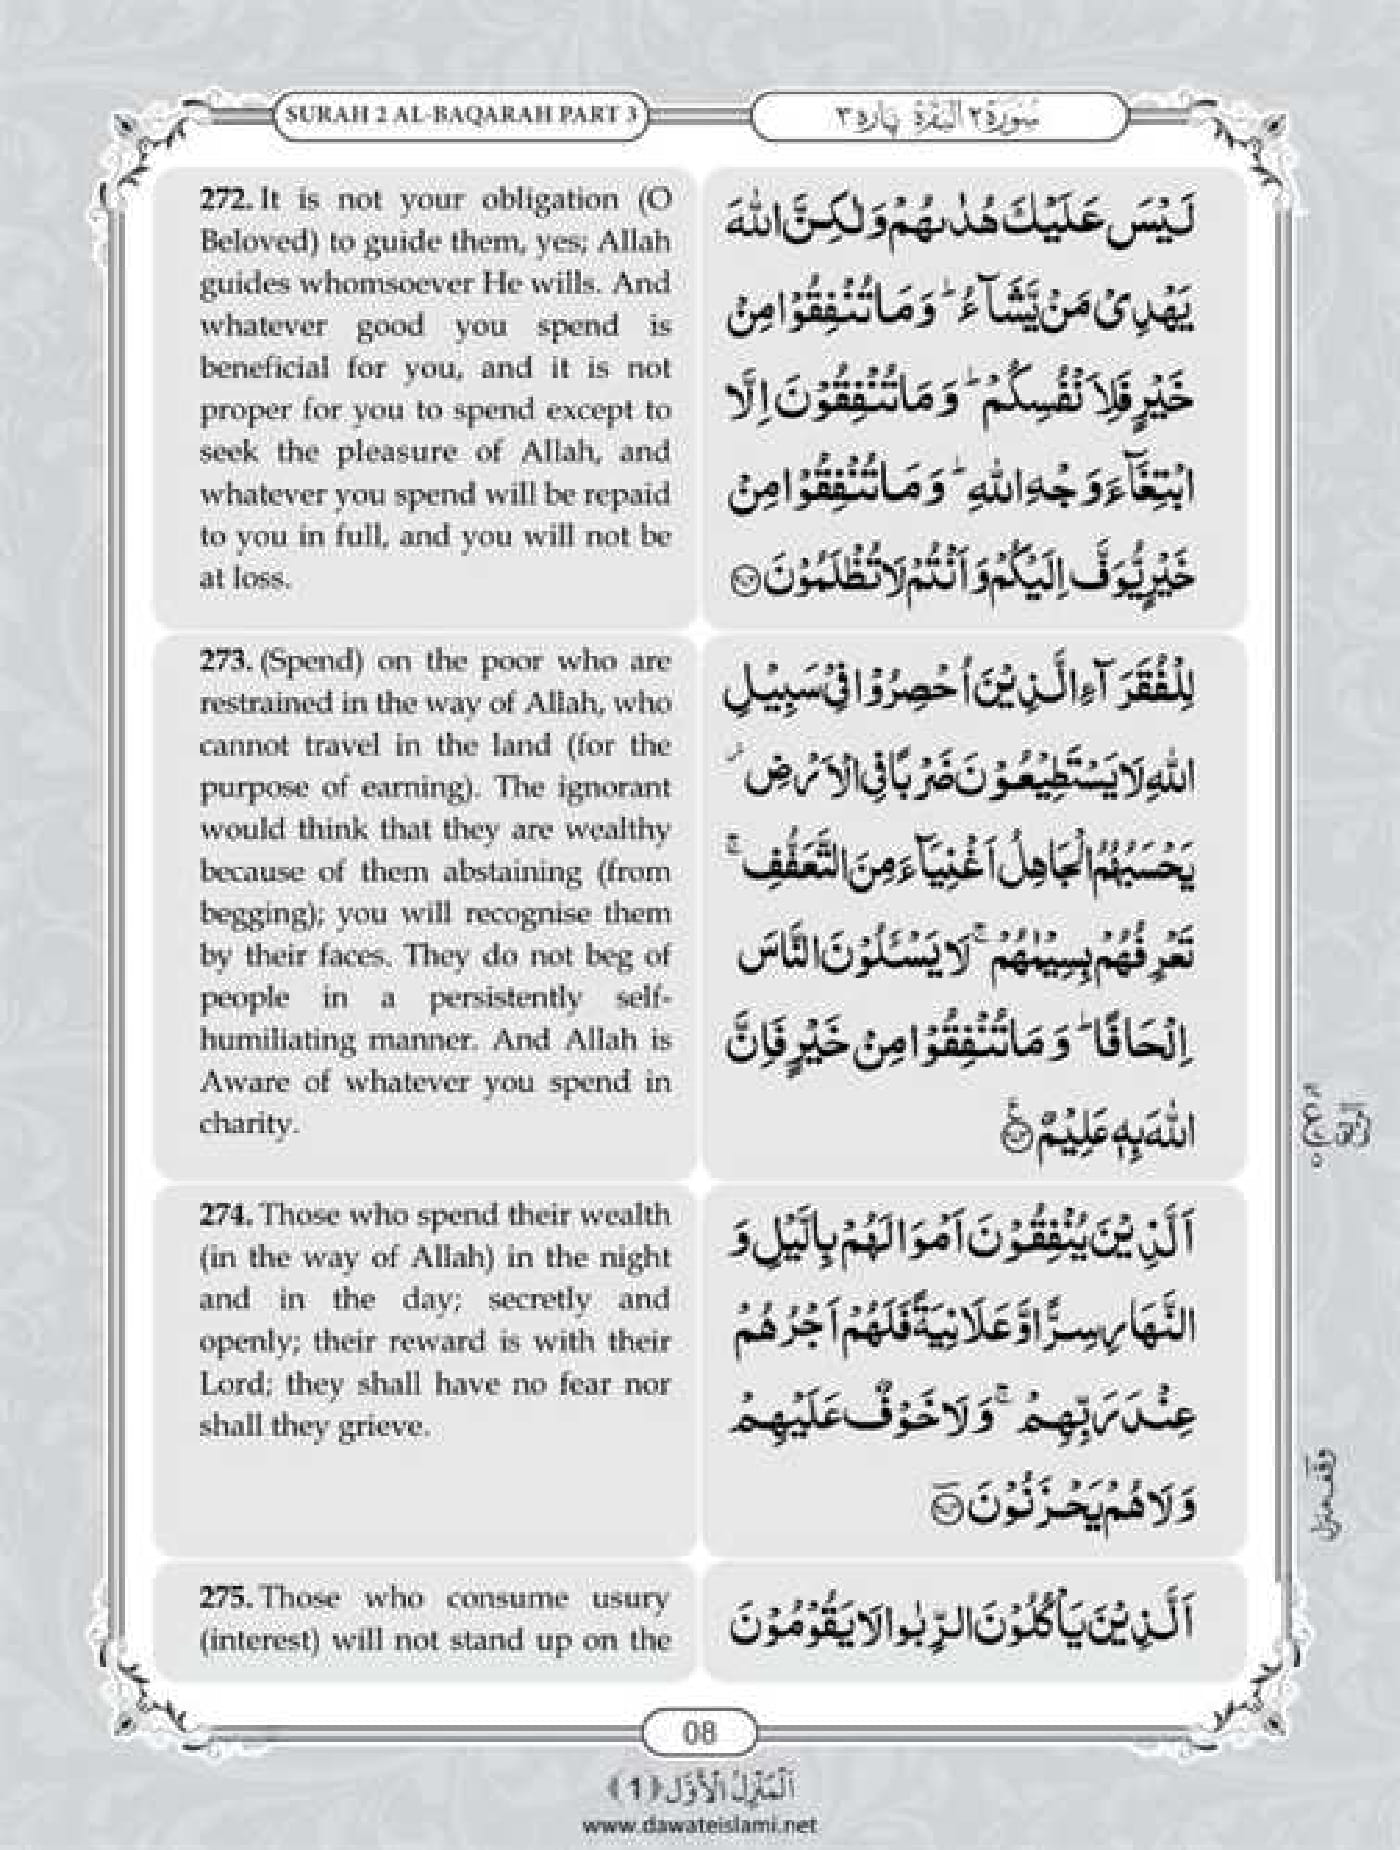 SURAH 2 AL-BAQARAH PART 3
سُوْرَة ٢ الْبَقَرَة پاره ٣
272. It is not your obligation (O
Beloved) to guide them, yes; Allah
guides whomsoever He wills. And
whatever good you spend is
beneficial for you, and it is not
proper for you to spend except to
seek the pleasure of Allah, and
whatever you spend will be repaid
to you in full, and you will not be
at loss.
لَيْسَ عَلَيْكَ هُدٰىهُمْ وَلٰكِنَّ اللّٰهَ
يَهْدِیْ مَنْ يَّشَآءُ ؕ وَ مَا تُنْفِقُوْا مِنْ
خَيْرٍ فَلِاَنْفُسِكُمْ ؕ وَ مَا تُنْفِقُوْنَ اِلَّا
ابْتِغَآءَ وَجْهِ اللّٰهِ ؕ وَ مَا تُنْفِقُوْا مِنْ
خَيْرٍ يُّوَفَّ اِلَيْكُمْ وَ اَنْتُمْ لَا تُظْلَمُوْنَ ﴿۲۷۲﴾
273. (Spend) on the poor who are
restrained in the way of Allah, who
cannot travel in the land (for the
purpose of earning). The ignorant
would think that they are wealthy
because of them abstaining (from
begging); you will recognise them
by their faces. They do not beg of
people in a persistently self-
humiliating manner. And Allah is
Aware of whatever you spend in
charity.
لِلْفُقَرَآءِ الَّذِيْنَ اُحْصِرُوْا فِیْ سَبِيْلِ
اللّٰهِ لَا يَسْتَطِيْعُوْنَ ضَرْبًا فِی الْاَرْضِ ۫
يَحْسَبُهُمُ الْجَاهِلُ اَغْنِيَآءَ مِنَ التَّعَفُّفِ ۚ
تَعْرِفُهُمْ بِسِيْمٰهُمْ ۚ لَا يَسْـَٔلُوْنَ النَّاسَ
اِلْحَافًا ؕ وَ مَا تُنْفِقُوْا مِنْ خَيْرٍ فَاِنَّ
اللّٰهَ بِهٖ عَلِيْمٌ ﴿۲۷۳﴾
274. Those who spend their wealth
(in the way of Allah) in the night
and in the day; secretly and
openly; their reward is with their
Lord; they shall have no fear nor
shall they grieve.
اَلَّذِيْنَ يُنْفِقُوْنَ اَمْوَالَهُمْ بِالَّيْلِ وَ
النَّهَارِ سِرًّا وَّ عَلَانِيَةً فَلَهُمْ اَجْرُهُمْ
عِنْدَ رَبِّهِمْ ۚ وَ لَا خَوْفٌ عَلَيْهِمْ
وَ لَا هُمْ يَحْزَنُوْنَ ﴿۲۷۴﴾
275. Those who consume usury
(interest) will not stand up on the
اَلَّذِيْنَ يَاْكُلُوْنَ الرِّبٰوا لَا يَقُوْمُوْنَ
وقف منزل
08
اَلْمَنْزِلُ الْاَوَّل ﴿1﴾
www.dawateislami.net